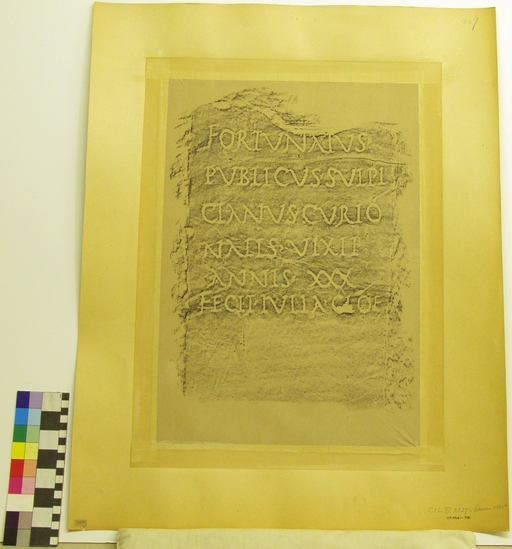 FORTVNATVS
PVBLICVS SVLPI
CIANVS CVRIÓ
NALIS VIXIT
ANNIS XXX
FECIT IVLIA CLOE